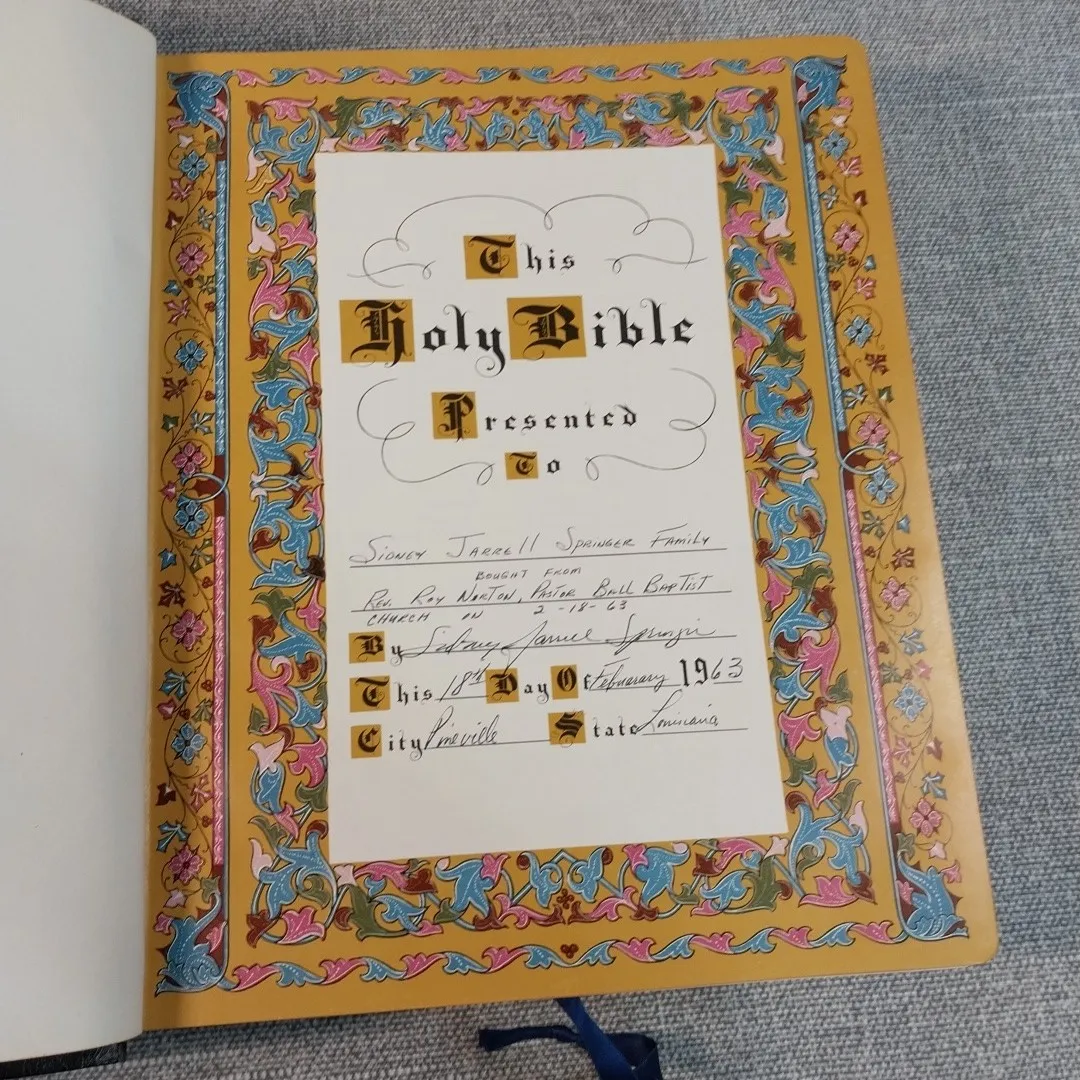 This
Holy Bible
Presented
To
SIDNEY JARRELL SPRINGER FAMILY
BOUGHT FROM
REV. ROY NORTON, PASTOR BALL BAPTIST
CHURCH ON 2-18-63
By Sidney Jarrell Springer
This 18th Day Of Febuarary 1963
City Pineville State Louisiana